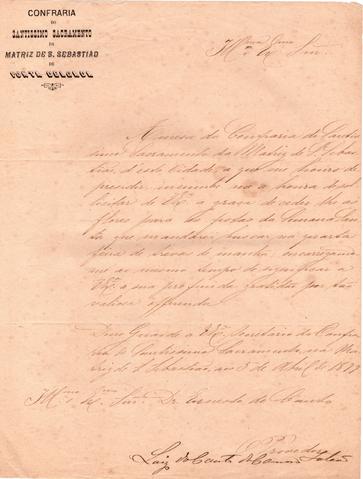 CONFRARIA
DO
SANTISSIMO SACRAMENTO
DA
MATRIZ DE S. SEBASTIÃO
DE
PONTA DELGADA
Ill.mo Exmo Snr.
A mesa da Confraria do Santis
simo Sacramento da Matriz de S. Sebas
tião, d'esta Cidade, a que me honro de
presidir, incumbe me a honra de so
licitar de V. Ex.ª a graça de ceder lhe as
flores para as festas da Semana San
ta que mandará buscar na quarta
feira de trevas de manhã, encarregan
me ao mesmo tempo de significar a
V. Ex.ª a sua profunda gratidão por tão
valiosa offerenda
Deus Guarde a V. Ex.ª Secretaria da Confra
ria do Santissimo Sacramento, na Ma
triz de S. Sebastião, aos 5 de Abril de 1877
Ill.mo Exmo Snr. Dr. Ernesto do Canto
O Provedor
Luiz do Canto da Camara